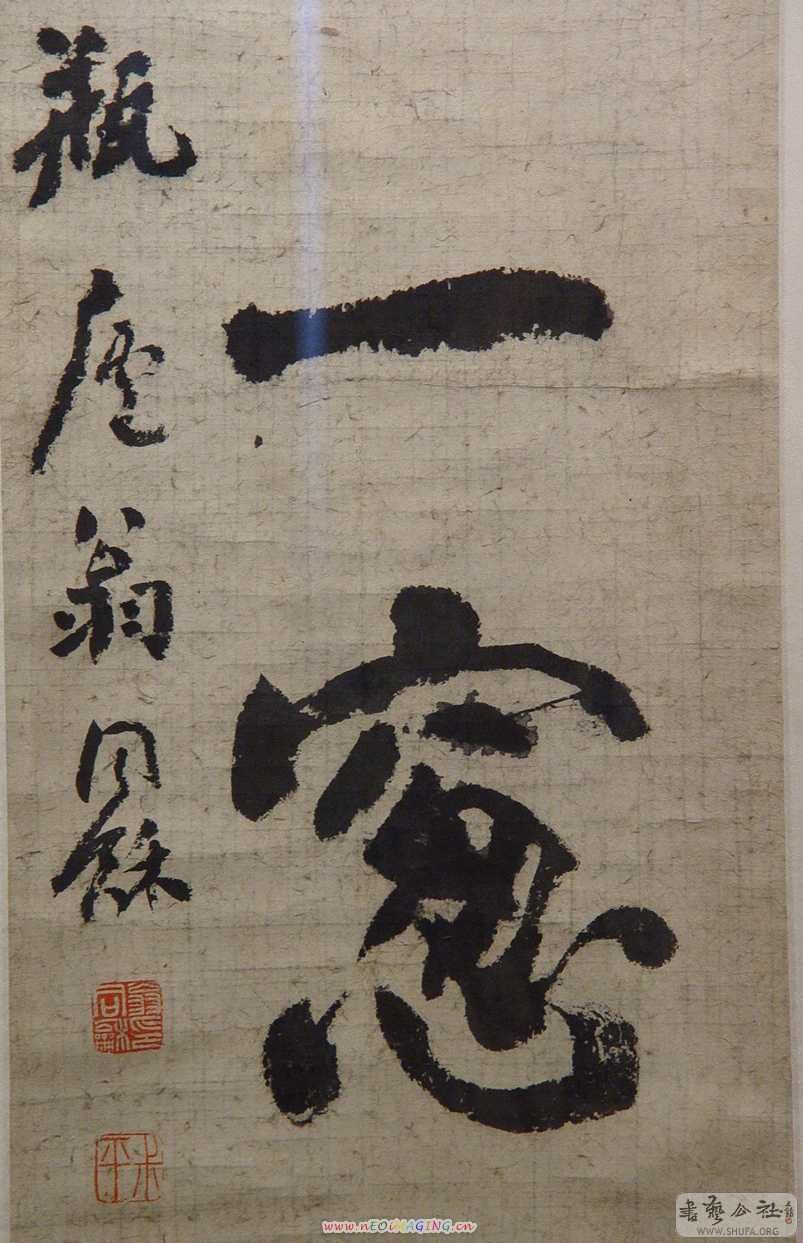 一窻
瓶廬翁同龢
翁同龢印
叔平
www.nEOiMAGING.cn
書藝公社
WWW.SHUFA.ORG